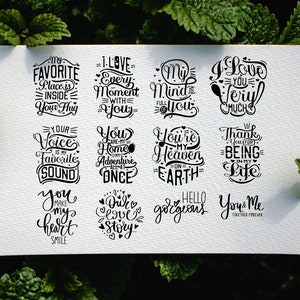 My
FAVORITE
Place is
INSIDE
Your Hug
I LOVE
Every
Moment
WITH YOU
My
Mind is
FULL of
YOU
I Love
YOU
Very
MUCH
YOUR
Voice
is my
Favorite
SOUND
You
ARE MY
Home
Adventure
ONCE
You're
My
Heaven
ON
EARTH
Thank
You FOR
BEING
IN MY
Life
you
MAKE
my
heart
SMILE
Our
love
Story
HELLO
gorgeous
You & Me
TOGETHER FOREVER